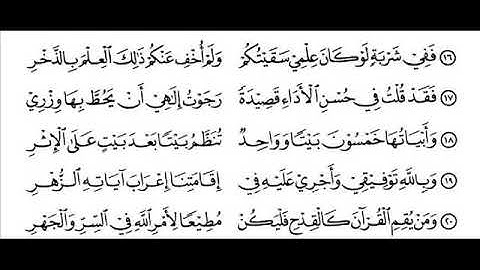 ١٦ فَفِي شَرْبَةٍ لَوْ كَانَ عِلْمِي سَقَيْتُكُمْ وَلَمْ أُخْفِ عَنْكُمْ ذَٰلِكَ الْعِلْمَ بِالذُّخْرِ
١٧ فَقَدْ قُلْتُ فِي حُسْنِ الْأَدَاءِ قَصِيدَةً رَجَوْتُ إِلَٰهِي أَنْ يَحُطَّ بِهَا وِزْرِي
١٨ وَأَبْيَاتُهَا خَمْسُونَ بَيْتًا وَوَاحِدٌ تُنَظَّمُ بَيْتًا بَعْدَ بَيْتٍ عَلَى الْإِثْرِ
١٩ وَبِاللَّهِ تَوْفِيقِي وَأَجْرِي عَلَيْهِ فِي إِقَامَتِنَا إِعْرَابَ آيَاتِهِ الزُّهْرِ
٢٠ وَمَنْ يُقِمِ الْقُرْآنَ كَالْقِدْحِ فَلْيَكُنْ مُطِيعًا لِأَمْرِ اللَّهِ فِي السِّرِّ وَالْجَهْرِ